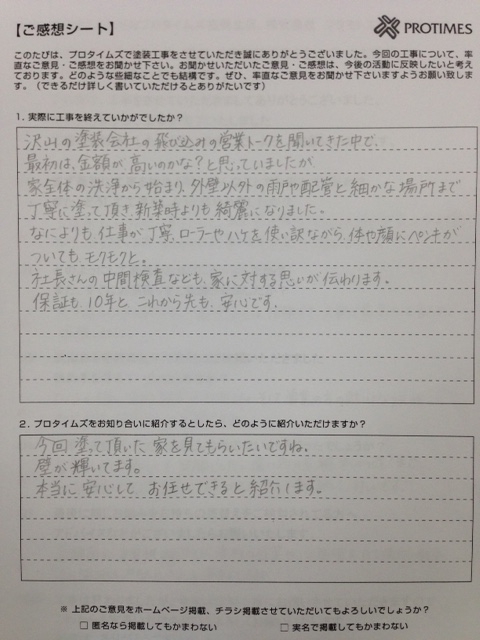 【ご感想シート】
PROTIMES
このたびは、プロタイムズで塗装工事をさせていただき誠にありがとうございました。今回の工事について、率
直なご意見・ご感想をお聞かせ下さい。お聞かせいただいたご意見・ご感想は、今後の活動に反映したいと考え
ております。どのような些細なことでも結構です。ぜひ、率直なご意見をお聞かせ下さいますようお願い致しま
す。（できるだけ詳しく書いていただけるとありがたいです）
1. 実際に工事を終えていかがでしたか？
沢山の塗装会社の飛び込みの営業トークを聞いてきた中で、
最初は、金額が高いのかな？と思っていましたが、
家全体の洗浄から始まり、外壁以外の雨戸や配管と細かな場所まで
丁寧に塗って頂き、新築時よりも綺麗になりました。
なによりも、仕事が丁寧、ローラーやハケを使い訳ながら、体や顔にペンキが
ついても、モクモクと。
社長さんの中間検査なども、家に対する思いが伝わります。
保証も、10年と、これから先も、安心です。
2. プロタイムズをお知り合いに紹介するとしたら、どのように紹介いただけますか？
今回塗って頂いた家を見てもらいたいですね。
壁が輝いてます。
本当に安心して、お任せできると紹介します。
※ 上記のご意見をホームページ掲載、チラシ掲載させていただいてもよろしいでしょうか？
□ 匿名なら掲載してもかまわない　□ 実名で掲載してもかまわない